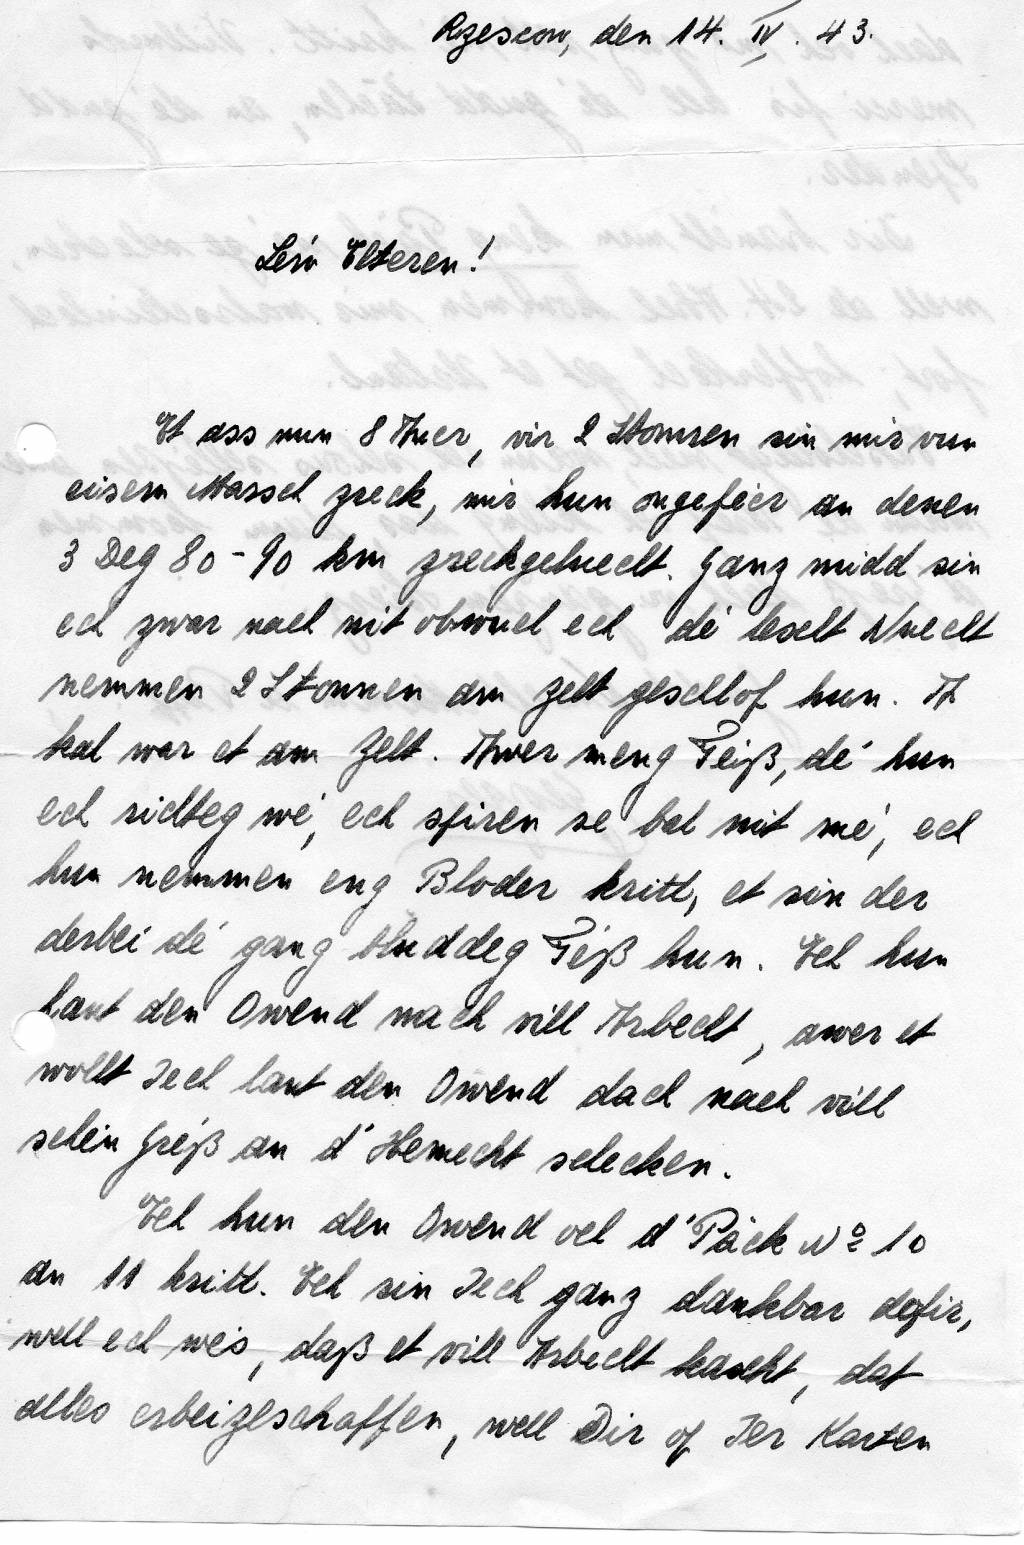 Rzescow, den 14. IV. 43.
Léiw Elteren!
Et ass nun 8 Auer, vir 2 Stonnen sin mir vun
eisem Marsch zreck, mir hun ongeféer an denen
3 Deg 80-90 km zreckgeluecht. Ganz midd sin
ech zwar nach nit obwuel ech dé lescht Nuecht
nemmen 2 Stonnen am Zelt geschlof hun. A
kal war et am Zelt. Awer meng Féiß, dé hun
ech richteg wé, ech spiren se bal nit mé, ech
hun nemmen eng Bloder kritt, et sin der
derbei dé ganz bluddeg Féß hun. Ech hun
haut den Owend nach vill Arbecht, awer et
wollt Iech haut den Owend dach nach vill
schéin Gréiß an d'Hemecht schecken.
Ech hun den Owend och d'Päck No 10
an 11 kritt. Ech sin Iech ganz dankbar dofir,
well ech wés, daß et vill Arbecht kascht, dat
alles erbeizeschaffen, well Dir op Jer Karten